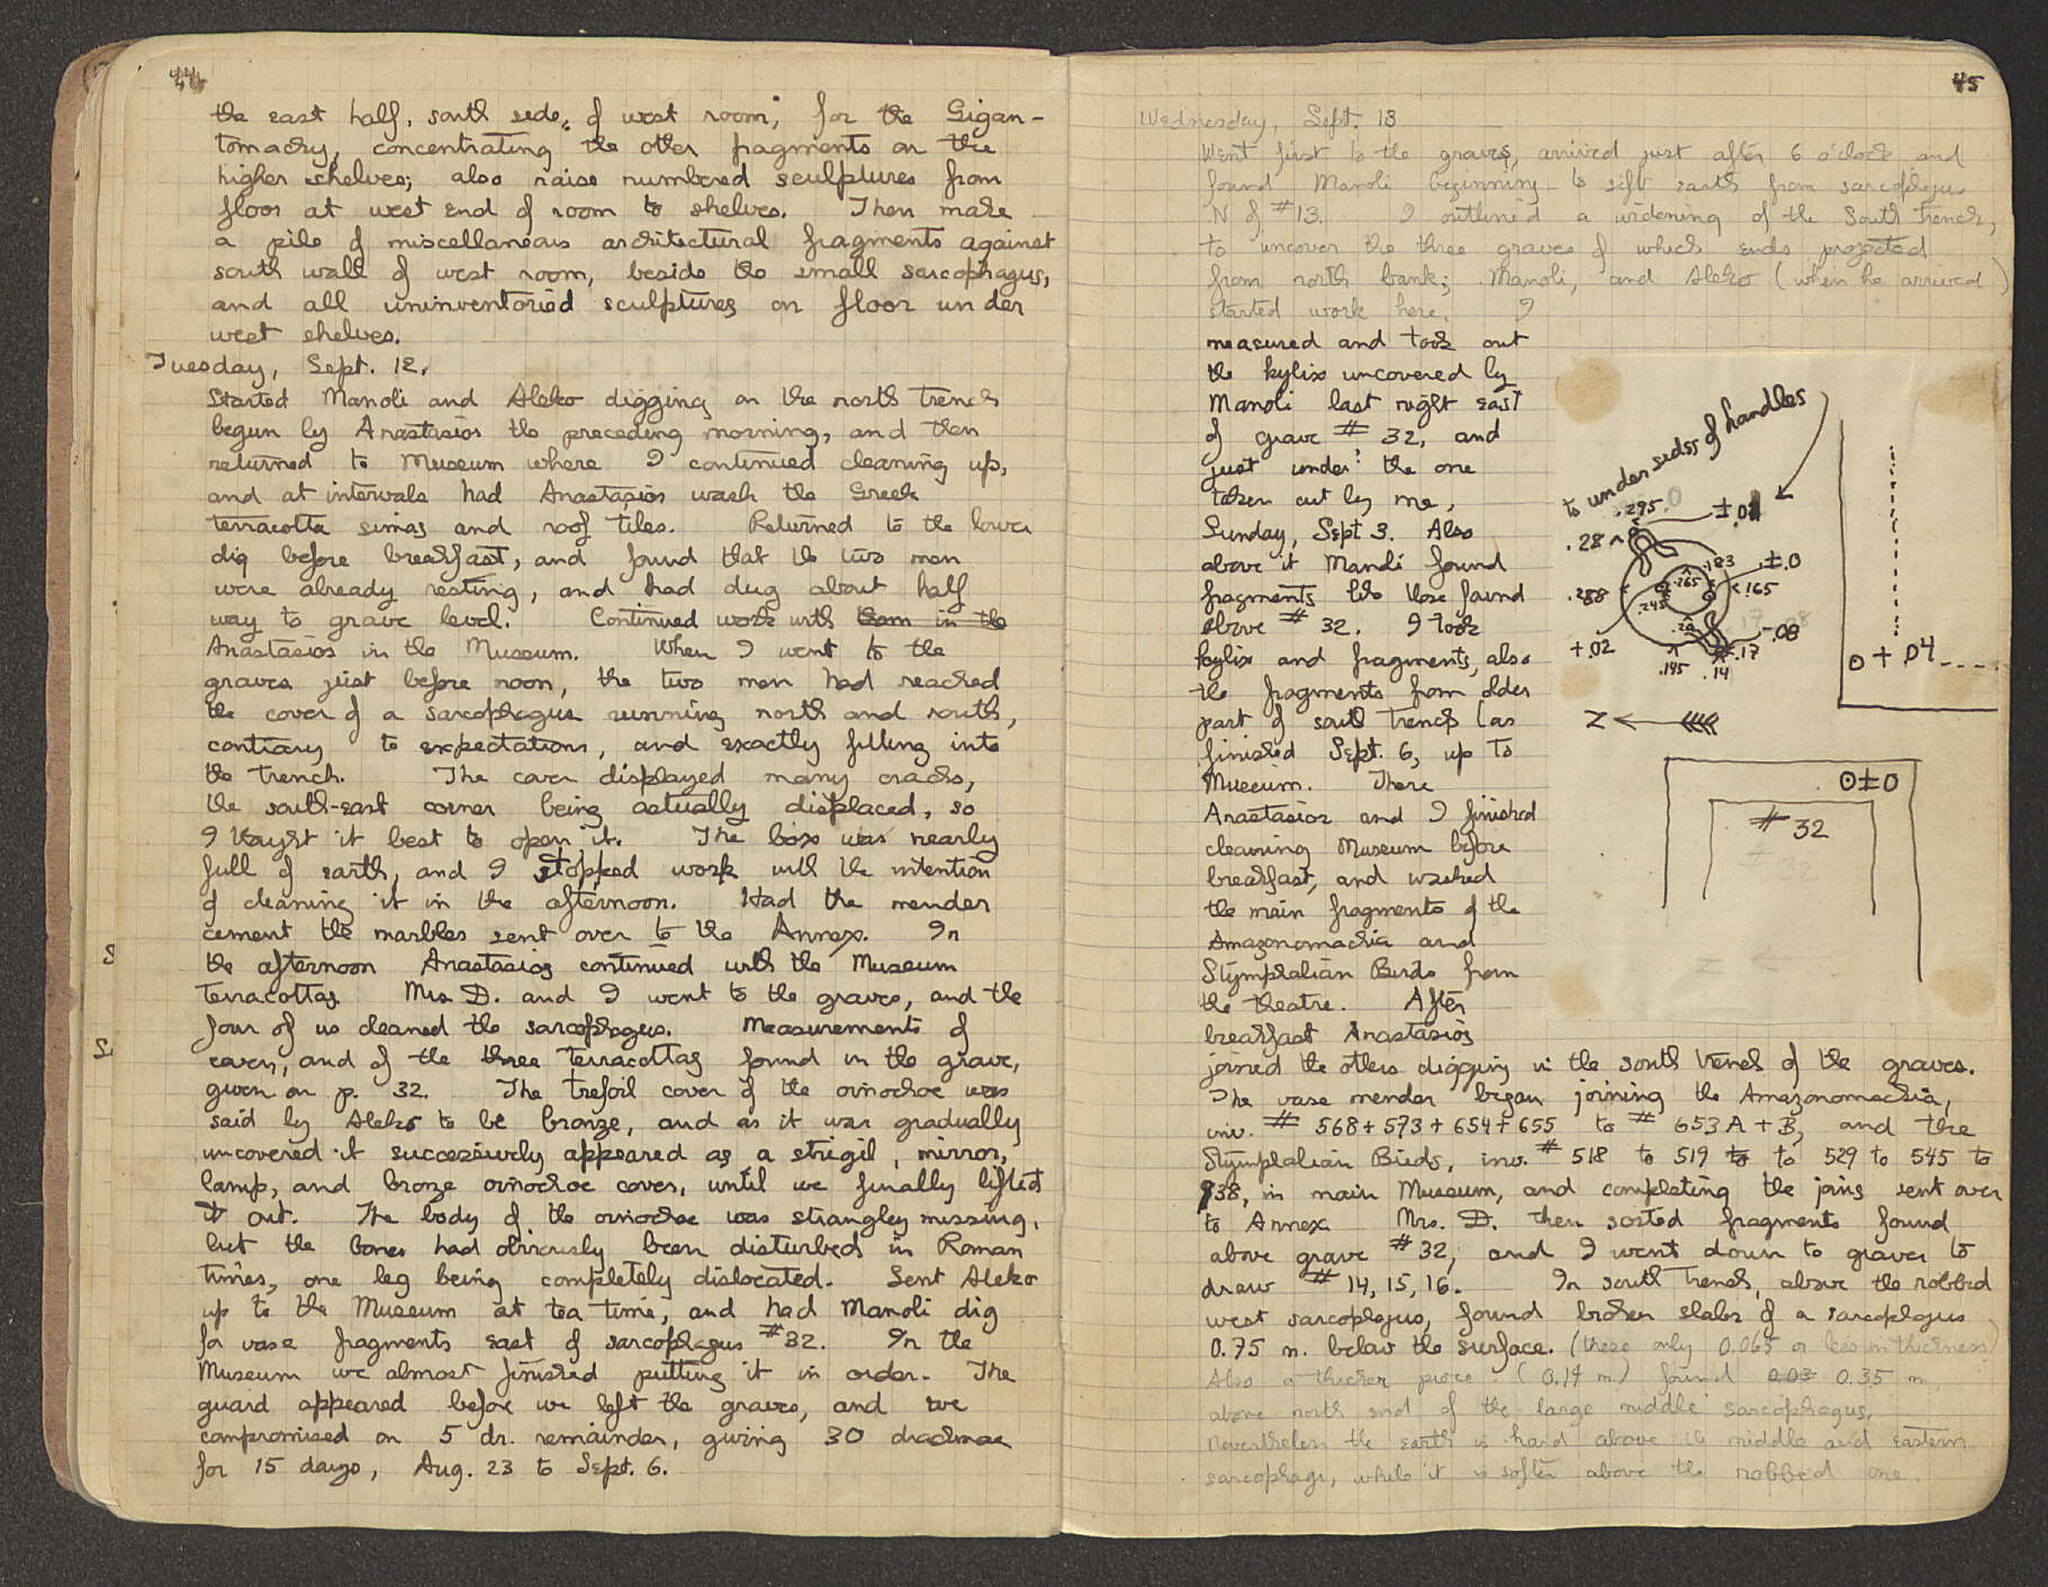 44
the east half, south side, of west room, for the Gigan-
tomachy, concentrating the other fragments on the
higher shelves; also raise numbered sculptures from
floor at west end of room to shelves. Then make
a pile of miscellaneous architectural fragments against
south wall of west room, beside the small sarcophagus,
and all uninventoried sculptures on floor under
west shelves.
Tuesday, Sept. 12.
Started Manoli and Aleko digging on the north trench
begun by Anastasios the preceding morning, and then
returned to Museum where I continued cleaning up,
and at intervals had Anastasios wash the Greek
terracotta simas and roof tiles. Returned to the lower
dig before breakfast, and found that the two men
were already resting, and had dug about half
way to grave level. Continued work with them in the
Anastasios in the Museum. When I went to the
graves just before noon, the two men had reached
the cover of a sarcophagus running north and south,
contrary to expectations, and exactly filling into
the trench. The cover displayed many cracks,
the south-east corner being actually displaced, so
I thought it best to open it. The box was nearly
full of earth, and I stopped work with the intention
of cleaning it in the afternoon. Had the mender
cement the marbles sent over to the Annex. In
the afternoon Anastasios continued with the Museum
terracottas. Mrs. D. and I went to the graves, and the
four of us cleaned the sarcophagus. Measurements of
cover, and of the three terracottas found in the grave,
given on p. 32. The trefoil cover of the oinochoe was
said by Aleko to be bronze, and as it was gradually
uncovered it successively appeared as a strigil, mirror,
lamp, and bronze oinochoe cover, until we finally lifted
it out. The body of the oinochoe was strangley missing,
but the bones had obviously been disturbed in Roman
times, one leg being completely dislocated. Sent Aleko
up to the Museum at tea time, and had Manoli dig
for vase fragments east of sarcophagus #32. In the
Museum we almost finished putting it in order. The
guard appeared before we left the graves, and we
compromised on 5 dr. remainder, giving 30 drachmae
for 15 days, Aug. 23 to Sept. 6.
45
Wednesday, Sept. 13
Went first to the graves, arrived just after 6 o'clock and
found Manoli beginning to sift earth from sarcophagus
N of #13. I outlined a widening of the South trench,
to uncover the three graves of which ends projected
from north bank; Manoli, and Aleko (when he arrived)
started work here. I
measured and took out
the kylix uncovered by
Manoli last night east
of grave # 32, and
just under the one
taken out by me,
Sunday, Sept 3. Also
above it Manoli found
fragments like those found
above # 32. I took
kylix and fragments, also
the fragments from older
part of south trench (as
finished Sept. 6, up to
Museum. There
Anastasios and I finished
cleaning Museum before
breakfast, and washed
the main fragments of the
Amazonomachia and
Stymphalian Birds from
the theatre. After
breakfast Anastasios
to under sides of handles
.295
±.01
.28
.183
±.0
.288
.265
.165
.245
.20
-.08
+.02
.195
.14
.17
0 + .04
N
0±0
# 32
joined the others digging in the south trench of the graves.
The vase mender began joining the Amazonomachia,
inv. # 568+573+654+655 to # 653A+B, and the
Stymphalian Birds, inv. # 518 to 519 to to 529 to 545 to
938, in main Museum, and completing the joins sent over
to Annex Mrs. D. then sorted fragments found
above grave # 32, and I went down to graves to
draw # 14, 15, 16. In south trench, above the robbed
west sarcophagus, found broken slabs of a sarcophagus
0.75 m. below the surface. (these only 0.065 or less in thickness)
Also a thicker piece (0.14 m) found 0.03 0.35 m.
above north end of the large middle sarcophagus.
Nevertheless the earth is hard above the middle and eastern
sarcophagi, while it is softer above the robbed one.